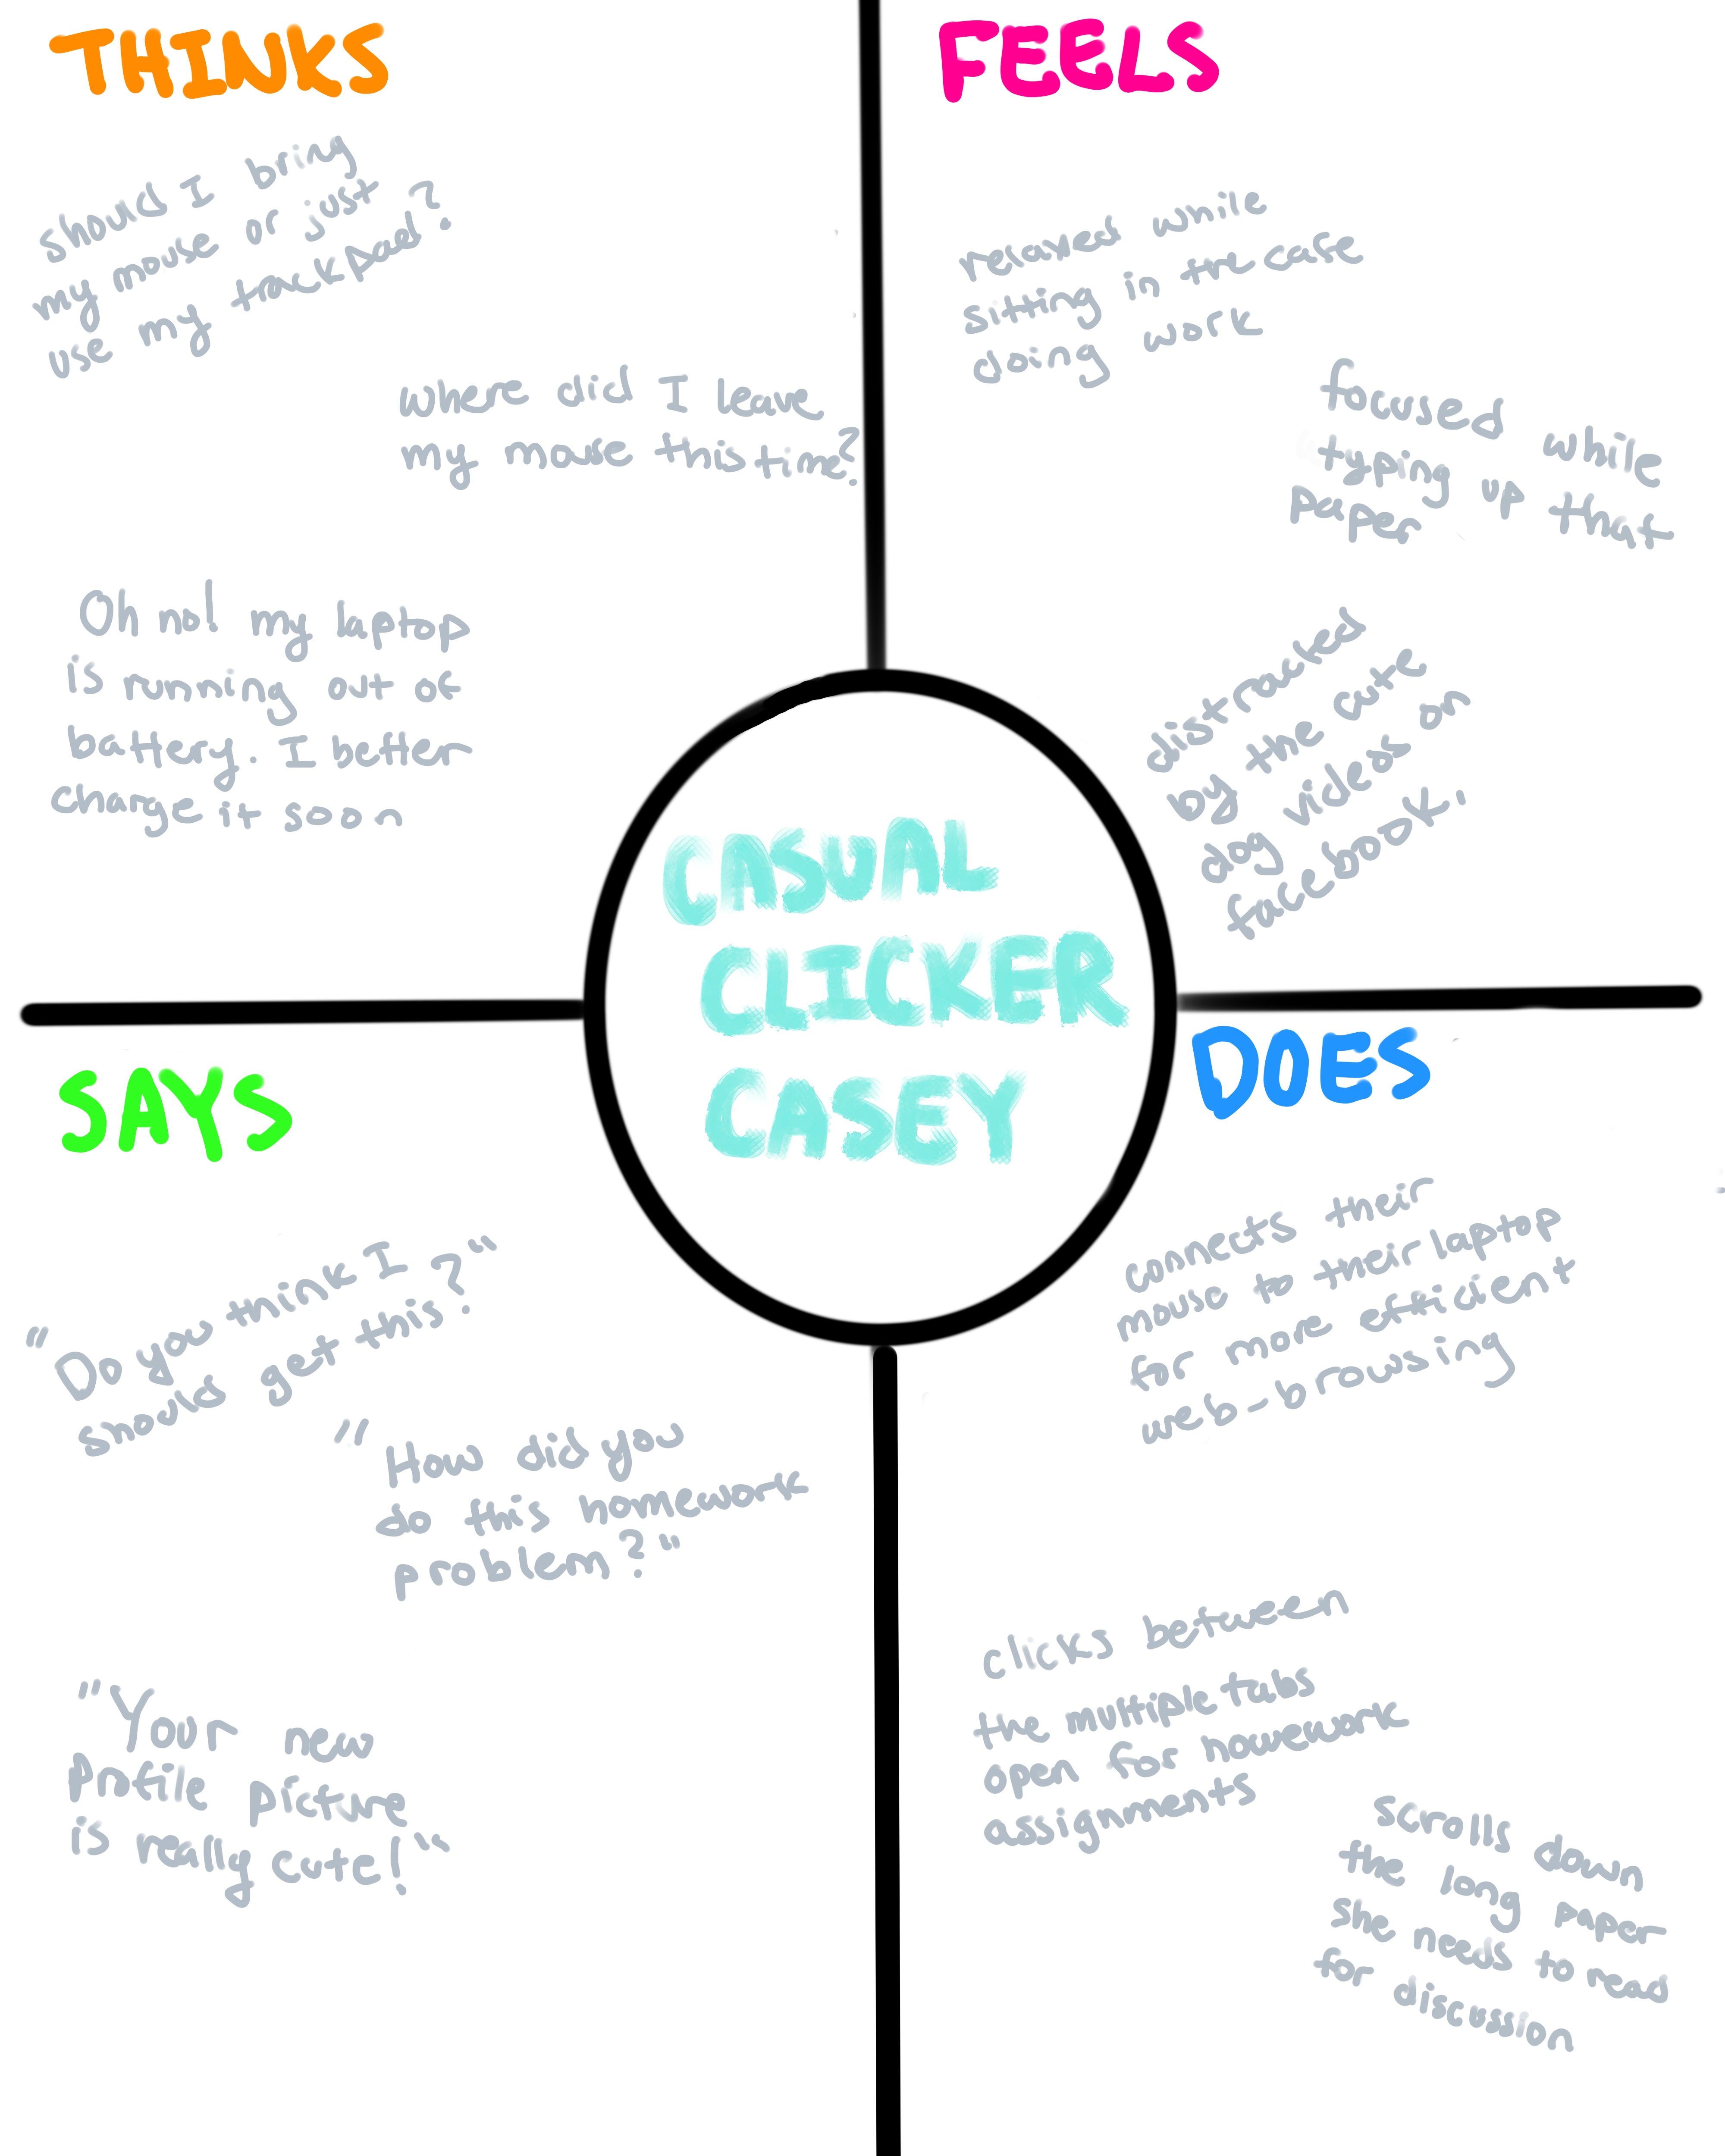 THINKS
should I bring
my mouse or just
use my trackpad?
where did I leave
my mouse this time?
Oh no! my laptop
is running out of
battery. I better
charge it soon
FEELS
relaxed while
sitting in the cafe
doing work
focused while
typing up that
paper
distracted
by the cute
dog videos on
facebook.
CASUAL
CLICKER
CASEY
SAYS
"Do you think I
should get this?"
"How did you
do this homework
problem?"
"Your new
profile picture
is really cute!"
DOES
connects their
mouse to their laptop
for more efficient
web-browsing
clicks between
the multiple tabs
open for homework
assignments
scrolls down
the long paper
she needs to read
for discussion